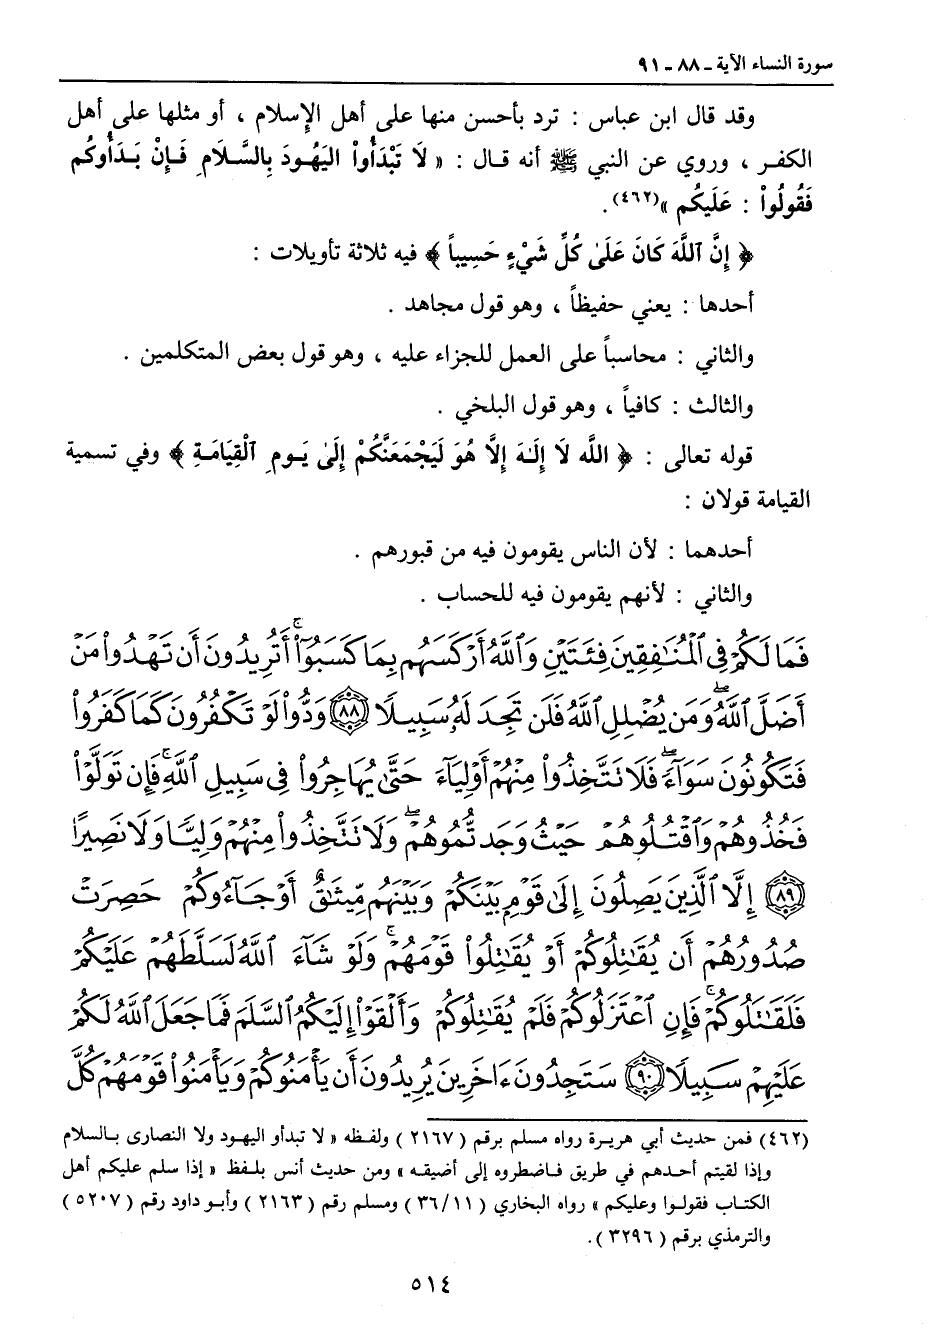 سورة النساء الآية ـ ٨٨ ـ ٩١
وقد قال ابن عباس : ترد بأحسن منها على أهل الإسلام ، أو مثلها على أهل
الكفر ، وروي عن النبي ﷺ أنه قال : « لَا تَبْدَأُواْ اليَهُودَ بِالسَّلَامِ فَإِنْ بَدَأُوكُم
فَقُولُواْ : عَلَيكُم »(٤٦٢).
﴿ إِنَّ ٱللَّهَ كَانَ عَلَىٰ كُلِّ شَيْءٍ حَسِيباً ﴾ فيه ثلاثة تأويلات :
أحدها : يعني حفيظاً ، وهو قول مجاهد .
والثاني : محاسباً على العمل للجزاء عليه ، وهو قول بعض المتكلمين .
والثالث : كافياً ، وهو قول البلخي .
قوله تعالى : ﴿ اللَّه لَا إِلَهَ إِلَّا هُوَ لَيَجْمَعَنَّكُمْ إِلَىٰ يَومِ ٱلْقِيَامَةِ ﴾ وفي تسمية
القيامة قولان :
أحدهما : لأن الناس يقومون فيه من قبورهم .
والثاني : لأنهم يقومون فيه للحساب .
فَمَا لَكُمْ فِي ٱلْمُنَٰفِقِينَ فِئَتَيْنِ وَٱللَّهُ أَرْكَسَهُم بِمَا كَسَبُوٓاْۚ أَتُرِيدُونَ أَن تَهْدُواْ مَنْ
أَضَلَّ ٱللَّهُۖ وَمَن يُضْلِلِ ٱللَّهُ فَلَن تَجِدَ لَهُۥ سَبِيلًا ﴿٨٨﴾ وَدُّواْ لَوْ تَكْفُرُونَ كَمَا كَفَرُواْ
فَتَكُونُونَ سَوَآءًۖ فَلَا تَتَّخِذُواْ مِنْهُمْ أَوْلِيَآءَ حَتَّىٰ يُهَاجِرُواْ فِي سَبِيلِ ٱللَّهِۚ فَإِن تَوَلَّوْاْ
فَخُذُوهُمْ وَٱقْتُلُوهُمْ حَيْثُ وَجَدتُّمُوهُمْۖ وَلَا تَتَّخِذُواْ مِنْهُمْ وَلِيًّا وَلَا نَصِيرًا
﴿٨٩﴾ إِلَّا ٱلَّذِينَ يَصِلُونَ إِلَىٰ قَوْمٍ بَيْنَكُمْ وَبَيْنَهُم مِّيثَٰقٌ أَوْ جَآءُوكُمْ حَصِرَتْ
صُدُورُهُمْ أَن يُقَٰتِلُوكُمْ أَوْ يُقَٰتِلُواْ قَوْمَهُمْۚ وَلَوْ شَآءَ ٱللَّهُ لَسَلَّطَهُمْ عَلَيْكُمْ
فَلَقَٰتَلُوكُمْۚ فَإِنِ ٱعْتَزَلُوكُمْ فَلَمْ يُقَٰتِلُوكُمْ وَأَلْقَوْاْ إِلَيْكُمُ ٱلسَّلَمَ فَمَا جَعَلَ ٱللَّهُ لَكُمْ
عَلَيْهِمْ سَبِيلًا ﴿٩٠﴾ سَتَجِدُونَ ءَاخَرِينَ يُرِيدُونَ أَن يَأْمَنُوكُمْ وَيَأْمَنُواْ قَوْمَهُمْ كُلَّ
(٤٦٢) فمن حديث أبي هريرة رواه مسلم برقم ( ٢١٦٧ ) ولفظه « لا تبدأو اليهود ولا النصارى بالسلام
وإذا لقيتم أحدهم في طريق فاضطروه إلى أضيقه » ومن حديث أنس بلفظ « إذا سلم عليكم أهل
الكتاب فقولوا وعليكم » رواه البخاري ( ٣٦/١١ ) ومسلم رقم ( ٢١٦٣ ) وأبو داود رقم ( ٥٢٠٧ )
والترمذي برقم ( ٣٢٩٦ ).
٥١٤